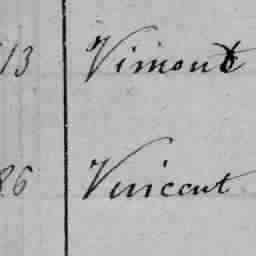 13 Vimont
86 Vincent